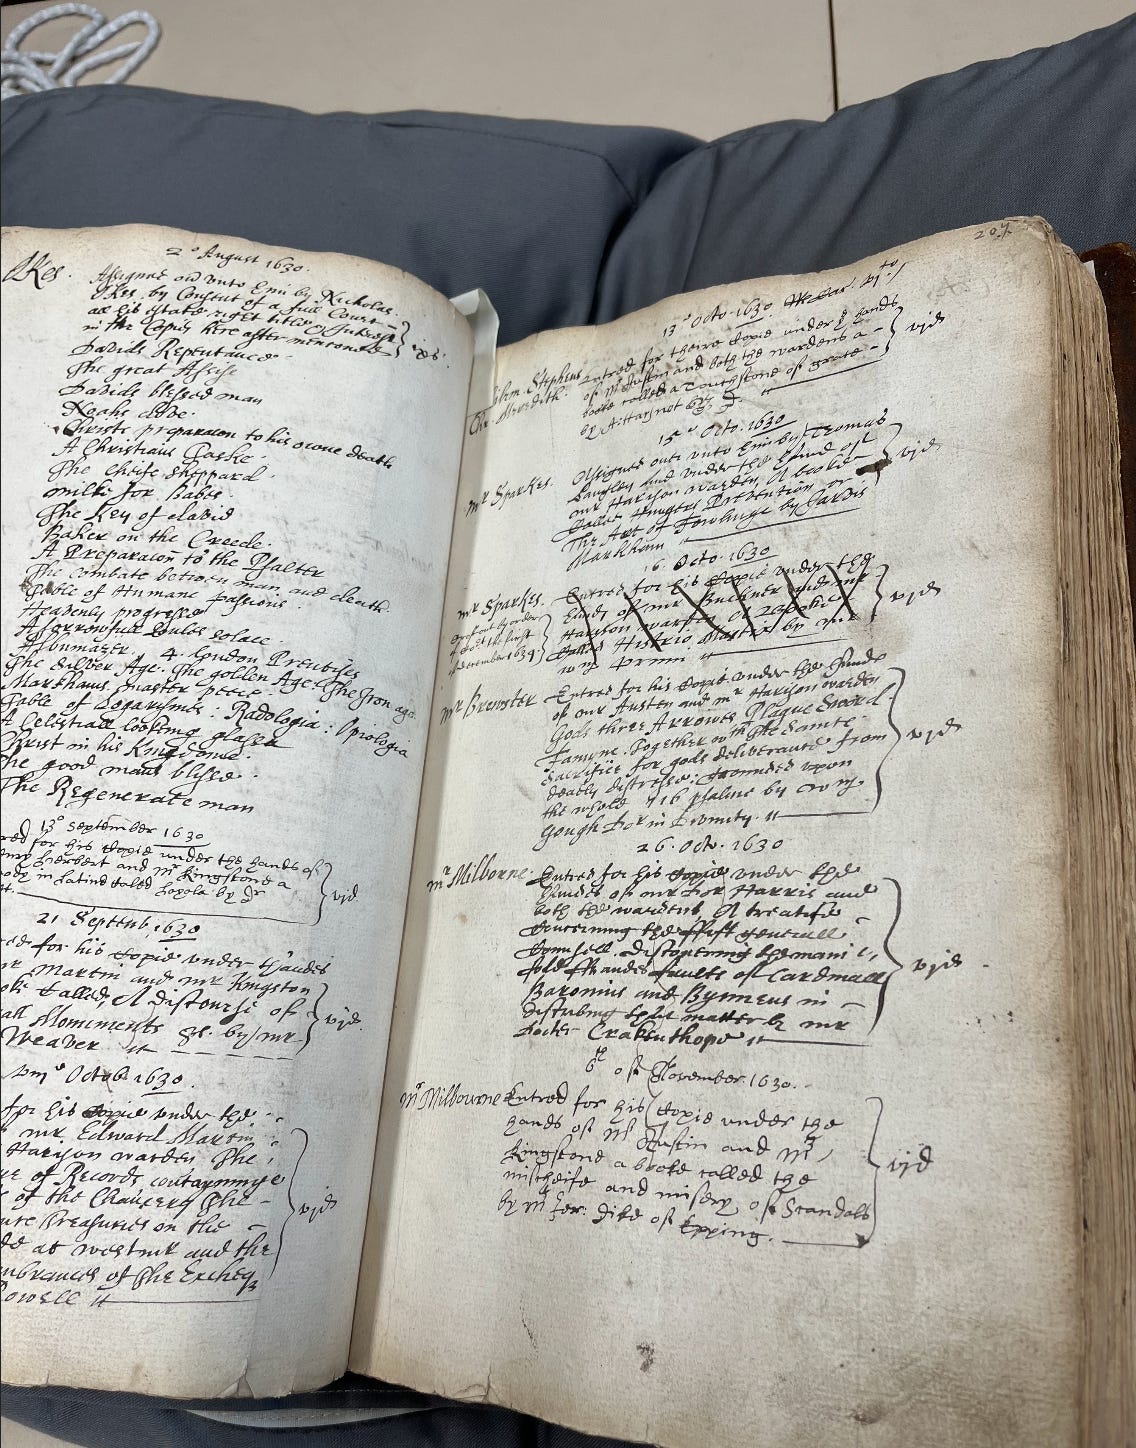 2° August 1630.
Okes.
Assigned over unto him by Nicholas
Okes by Consent of a full Court
all his estate right title & Interest
in the Copies here after menconed
vjs
Davids Repentance
The great Assise
Davids blessed man
Noahs dove.
Christs preparacon to his owne death
A Christians Taske.
The cheife Sheppard
milke for Babes.
The Key of david
Baker on the Creede.
A Preparacon to the Psalter
The Combate betweene man and death.
Table of Humane passions.
Heavenly progresse
A sorrowfull soules solace.
Albumazer. 4. London Prentises
The Silver Age. The golden Age. The Iron age.
Markhams master peece.
Table of Logarithmes: Radologia: Opiologia
A Celestiall looking glasse
Christ in his Kingdome.
he good mans blisse.
The Regenerate man
13° September 1630
red for his Copie under the hands of
Henry Herbert and Mr Kingstone a
in Latine called Loyola by Dr
vjd
21 Septemb. 1630
ed for his Copie under thandes
mr Martin and mr Kingston
called, A Discourse of
all Moniments &c. by mr
Weaver
vjd.
Octob. 1630.
for his Copie under the
mr. Edward Martin
Harison warden The
of Records contayninge
of the Chancery The
Treasuries on the
at westmr and the
mbrances of The Excheq
Powell
vjd
207
13° Octo. 1630
Stephens
Meredith.
Entred for theire Copie under the hands
of Mr Austin and both the wardens a
booke called a Touchstone of
by
vjd
15° Octo. 1630
mr Sparkes.
Assigned over unto him by Thomas
Langley and under the hand of
mr Harison warden, A booke
Called Hungers Prevention or
The Art of Fowlinge by Jarvis
Markham
vjd
16. Octo. 1630
mr Sparkes.
Entred for his Copie under the
hands of mr Buckner and mr
Harison warden A Booke
Called Histrio Mastix by mr
Wm Prinn
vjd
order
the first
mr Brewster
Entred for his Copie under the hands
of mr Austen and mr Harison warden
Gods three Arrowes Plague Sword
Famyne. Together with The Sainte
Sacrifice for gods deliverance from
deadly distresse: grounded upon
the whole 116 psalme by Wm
Gough Dor in Divinity.
vjd
26. Octo. 1630
mr Milborne.
Entred for his Copie under the
handes of mr Dor Harris and
both the wardens, A treatise
Concerning the fift generall
Counsell. discovering the mani
fold frandes faults of Cardinall
Baronius and Bynneus in
disturbing that matter by mr
Docter Crakenthope
vjd
6th of November 1630.
mr Milbourne
Entred for his Copie under the
hands of Mr Austin and Mr
Kingstone a booke called the
mischeife and misery of Scandals
by Mr Jer: Dike of Epping.
vjd